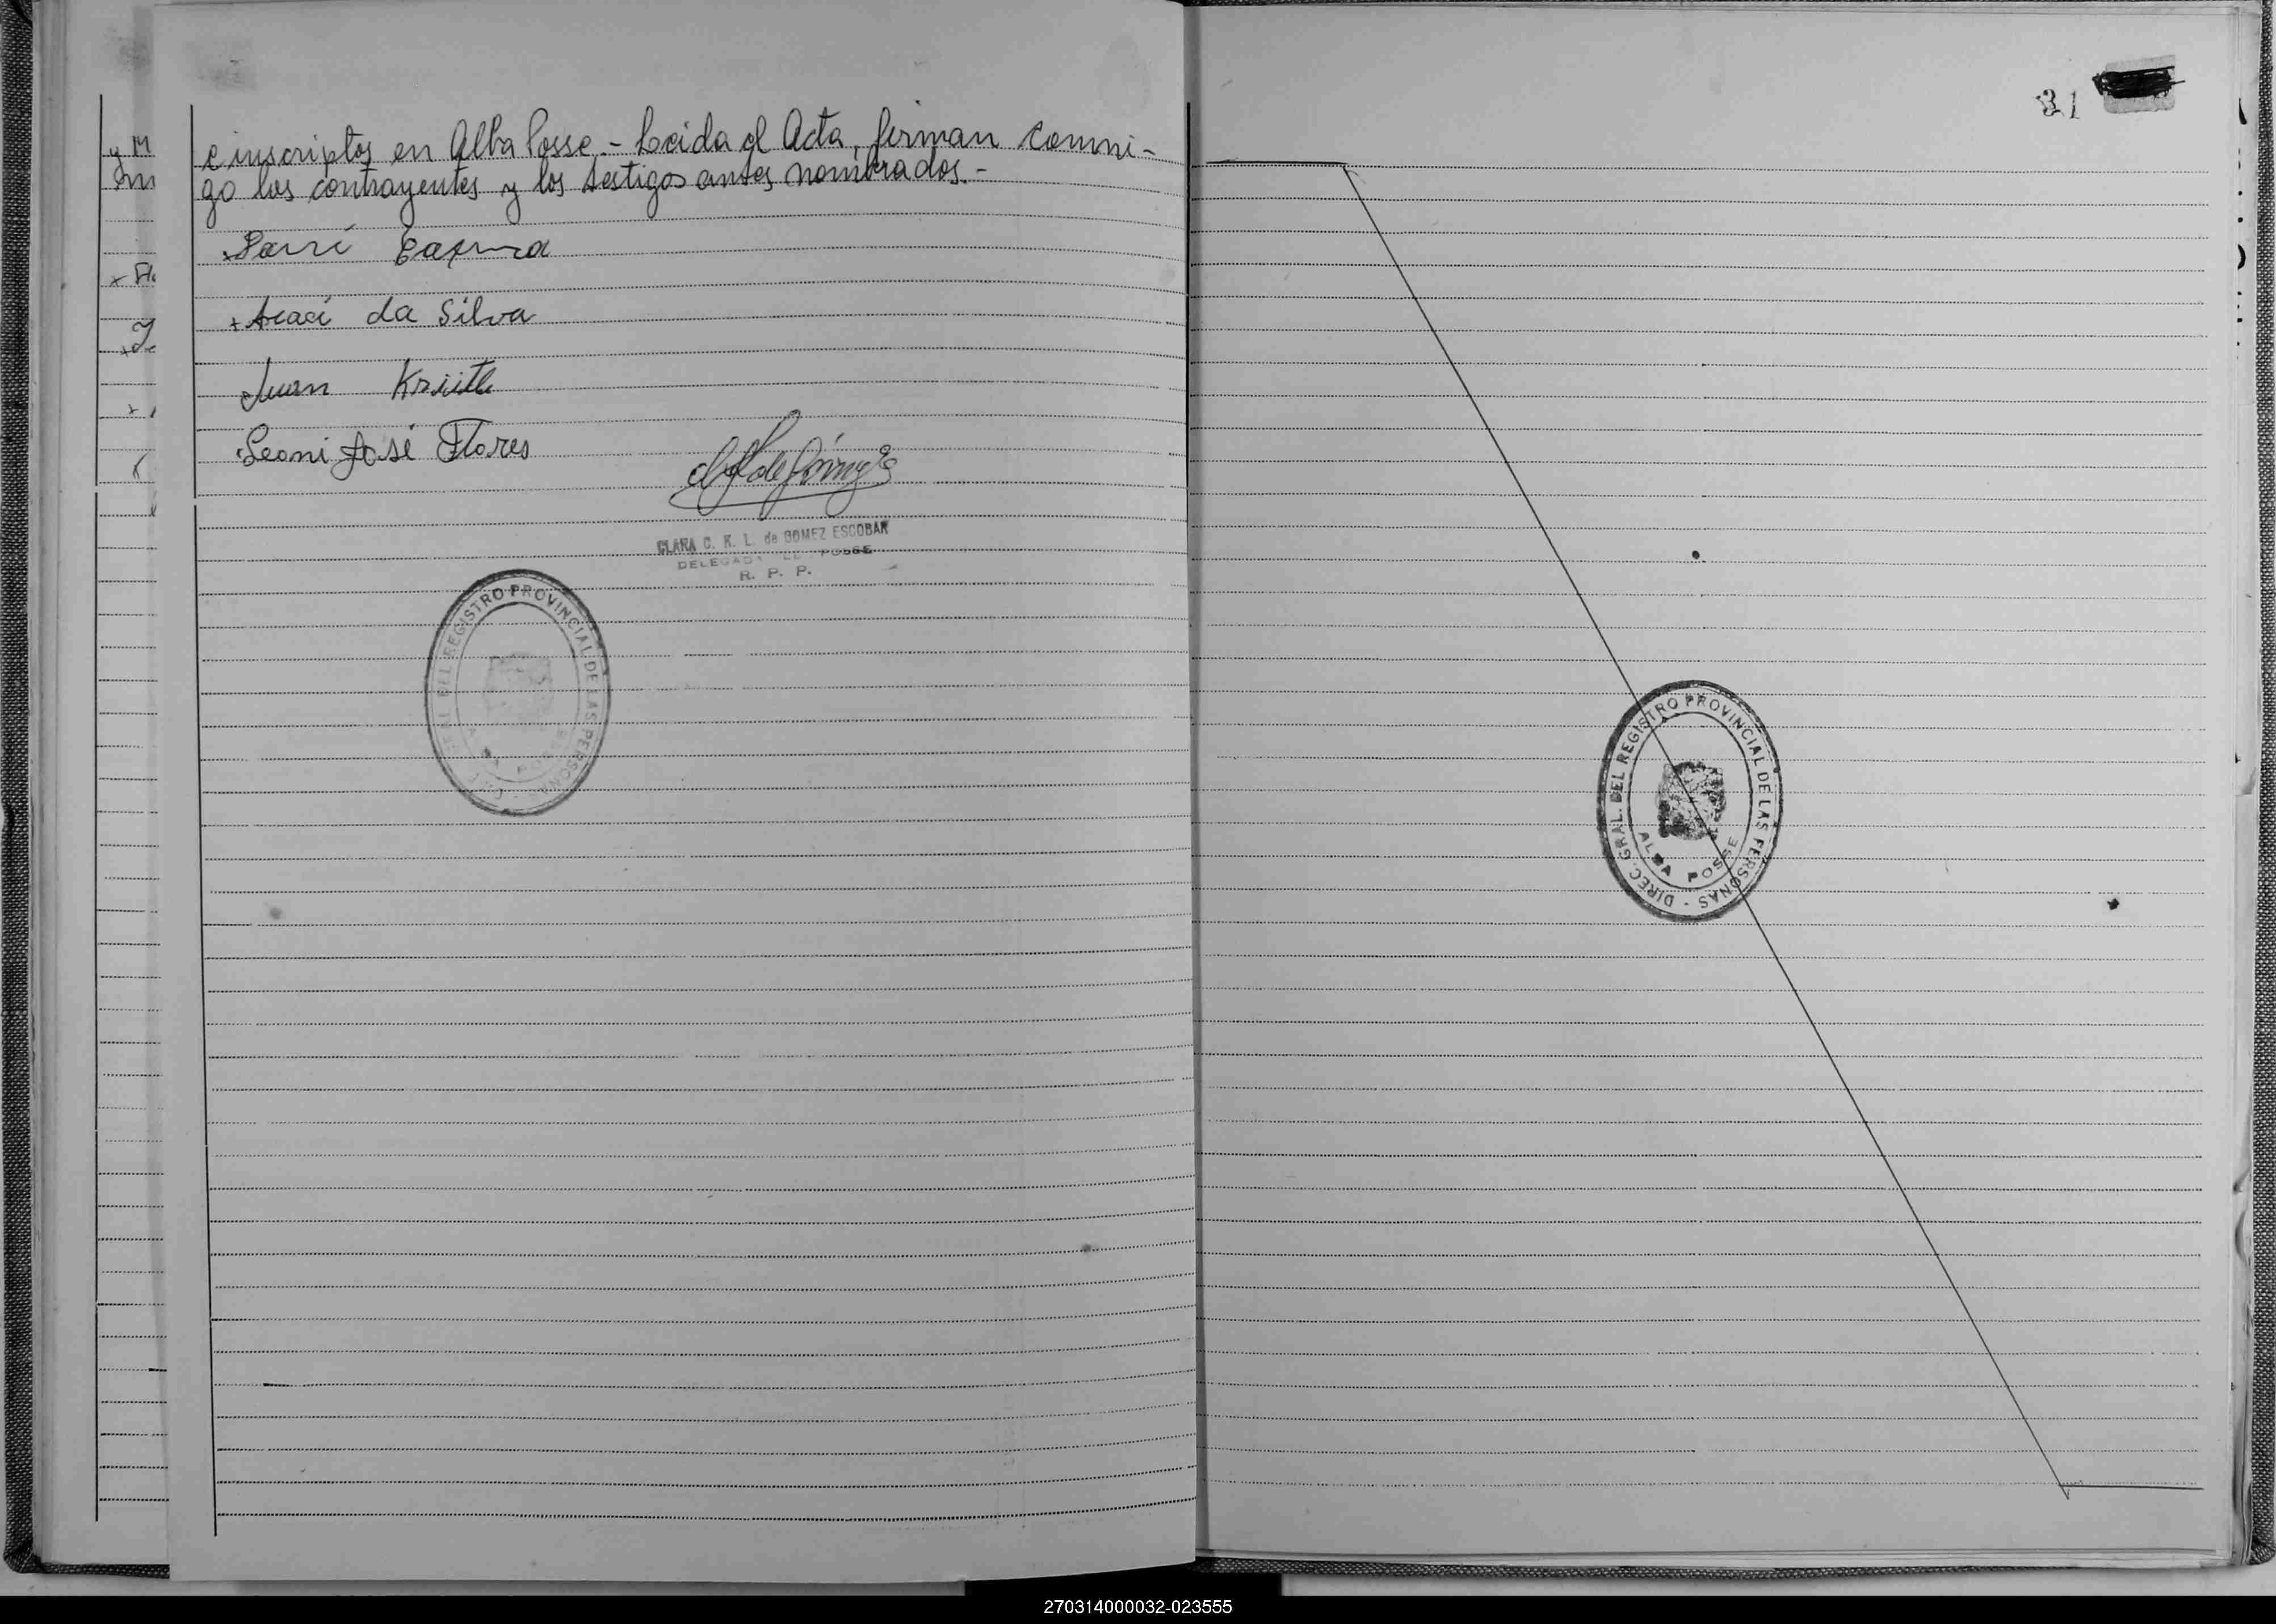 31
e inscriptos en Alba Posse.- Leida el Acta, firman conmi-
go los contrayentes y los testigos antes nombrados.-
da Silva
Juan
Leoni José Flores
CLARA C. K. L. de GOMEZ ESCOBAR
DELEGADA POSSE
R. P. P.
DIREC. GRAL. DEL REGISTRO PROVINCIAL DE LAS PERSONAS -
DIREC. GRAL. DEL REGISTRO PROVINCIAL DE LAS PERSONAS -
ALBA POSSE
270314000032-023555